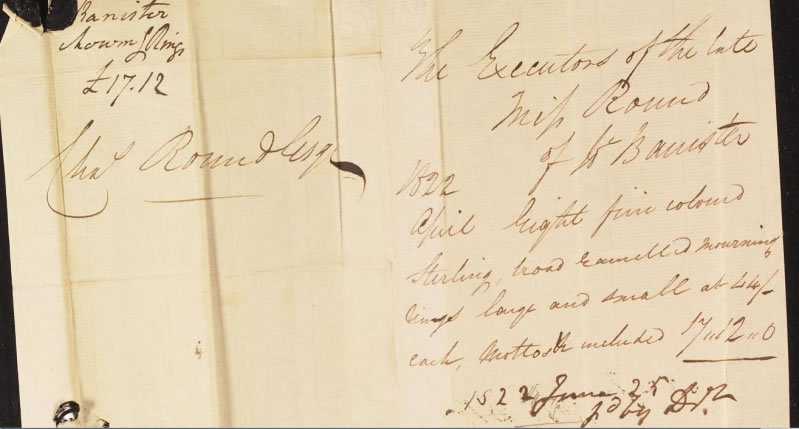 Banister
Mourng Rings
£17.12
Chas Round Esqr
The Executors of the late
Miss Round
of Banister
1822
April Eight fine coloured
Sterling, broad Enamelled mourning
rings large and small at 44/-
each, Mottos included 17"12"0
1822 June 25
pd by